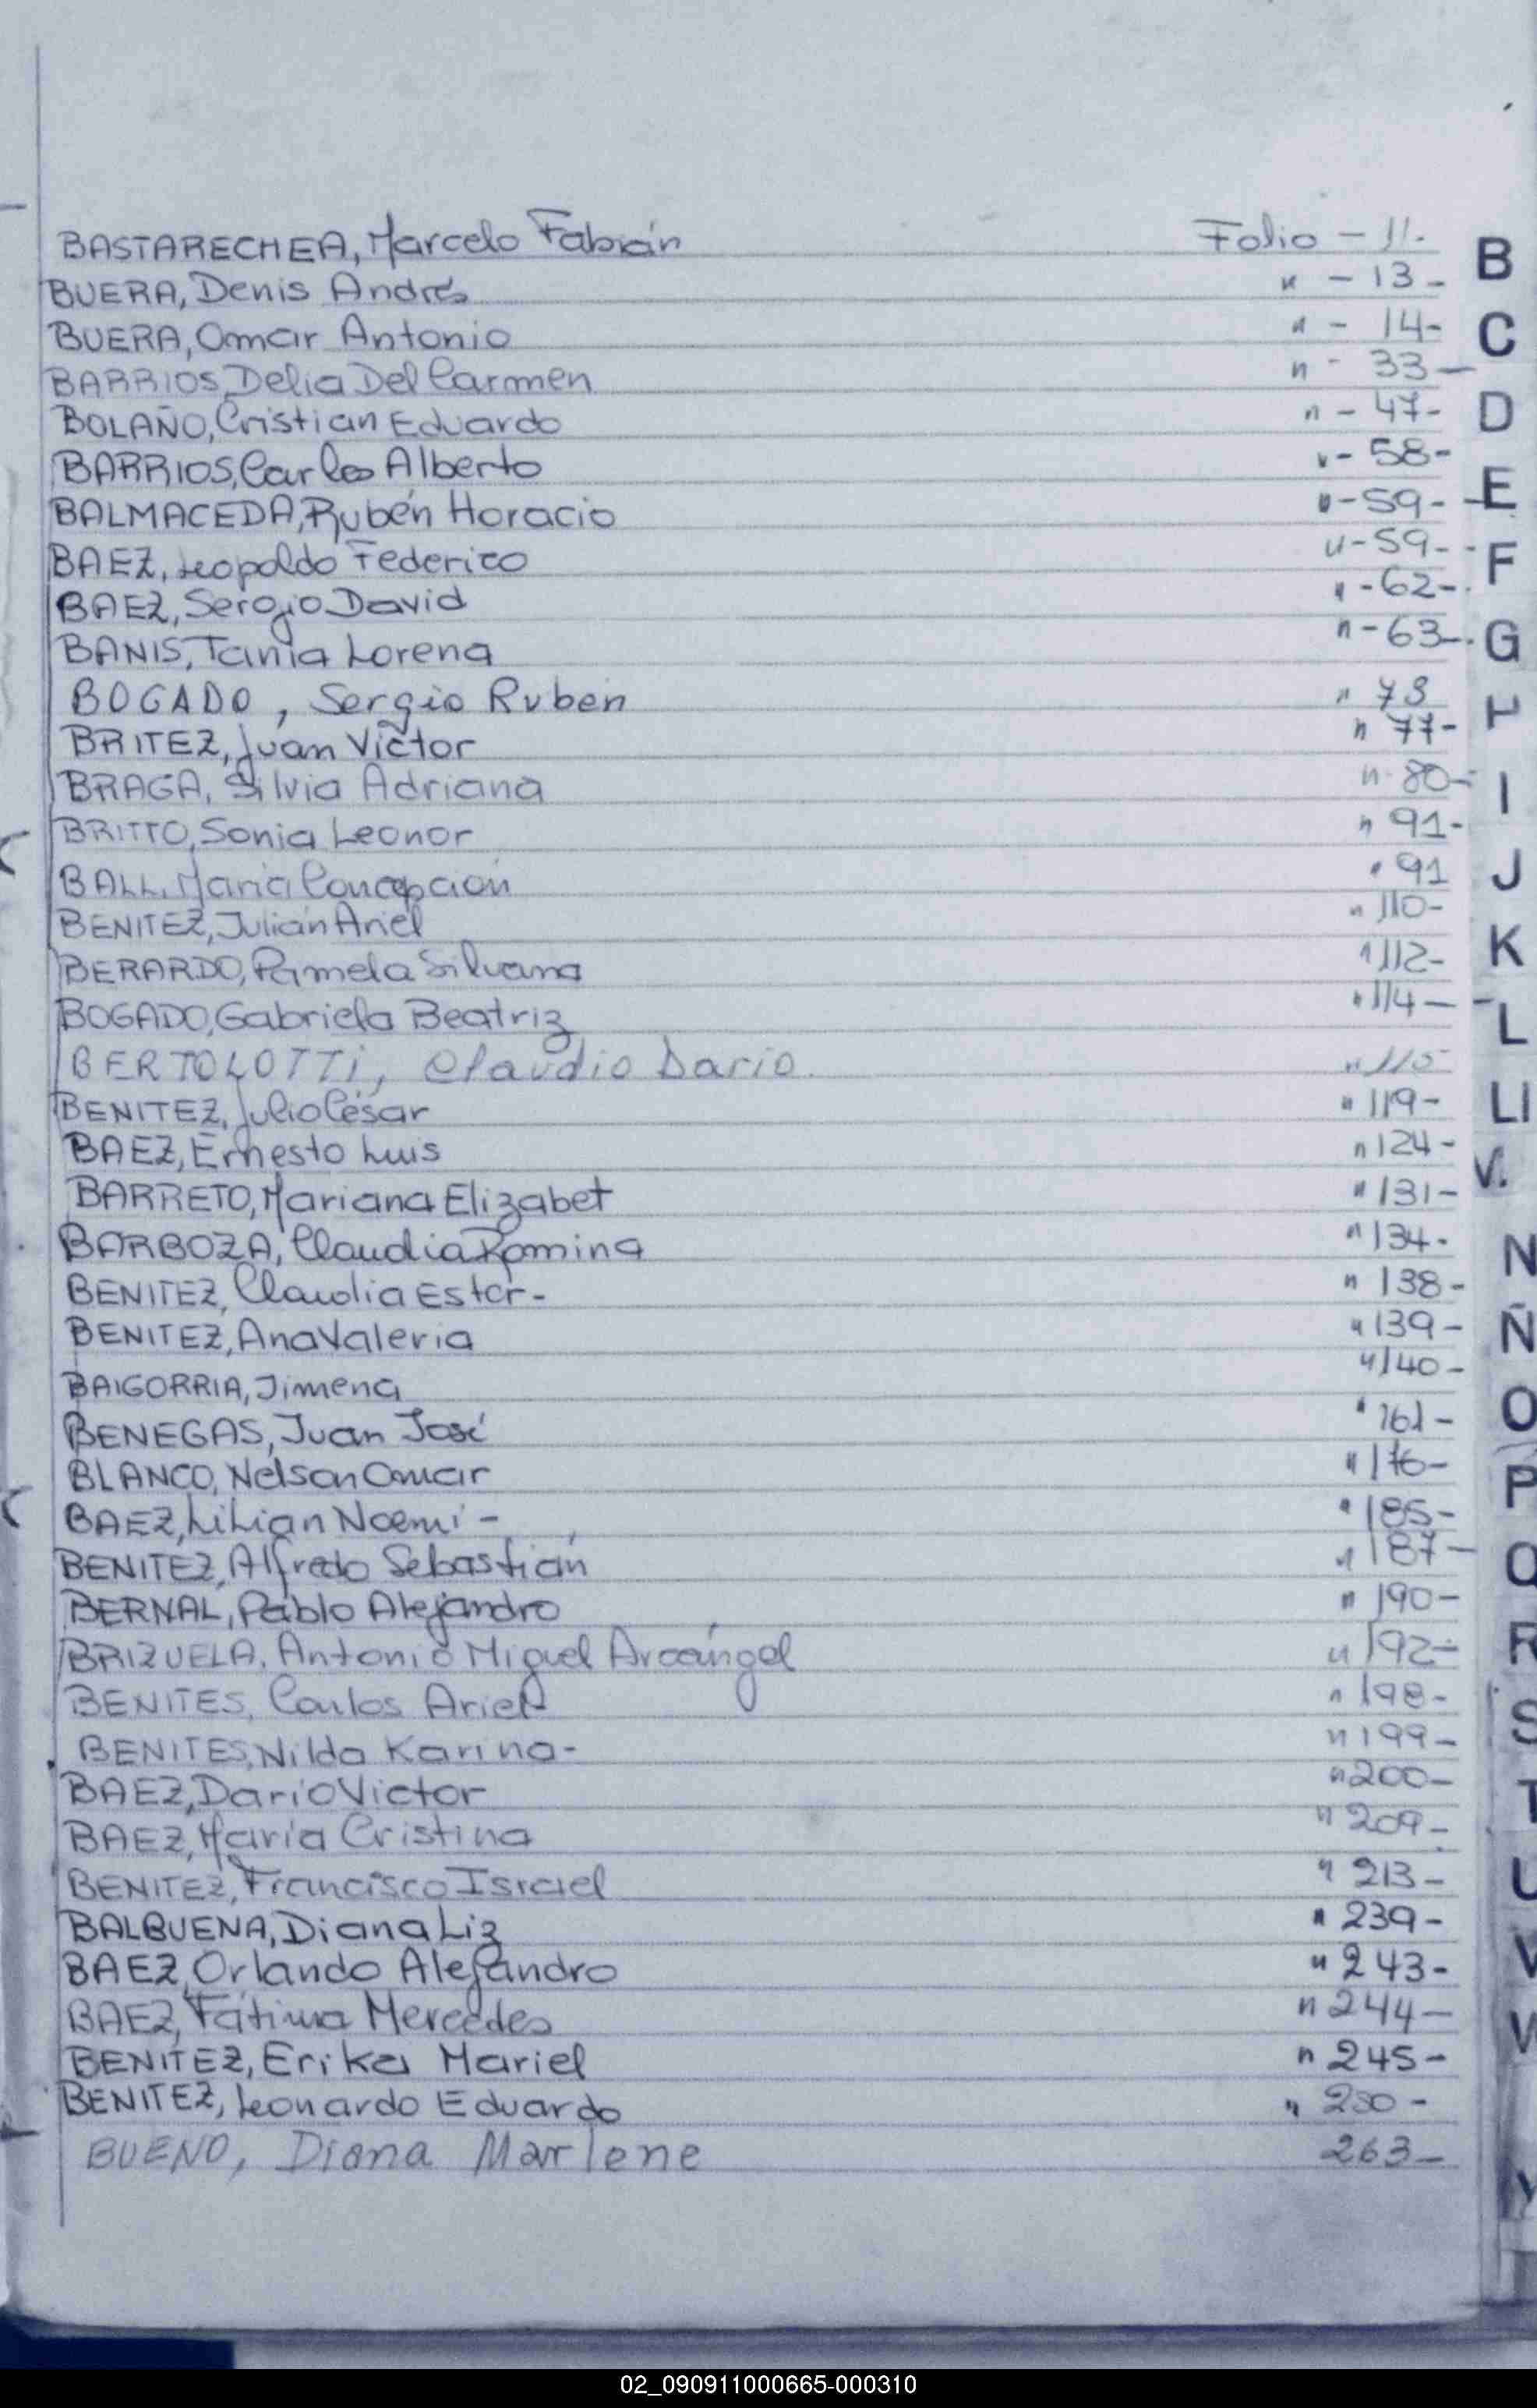 BASTARECHEA, Marcelo Fabián Folio - 11.
BUERA, Denis Andrés " - 13 -
BUERA, Omar Antonio " - 14 -
BARRIOS, Delia Del Carmen " - 33 -
BOLAÑO, Cristian Eduardo " - 47 -
BARRIOS, Carlos Alberto " - 58 -
BALMACEDA, Rubén Horacio " - 59 -
BAEZ, Leopoldo Federico " - 59 -
BAEZ, Sergio David " - 62 -
BANIS, Tania Lorena " - 63 -
BOGADO, Sergio Ruben " 73
BRITEZ, Juan Victor " 77 -
BRAGA, Silvia Adriana " 80 -
BRITTO, Sonia Leonor " 91 -
BALL, María Concepción " 91
BENITEZ, Julián Ariel " 110 -
BERARDO, Pamela Silvana " 112 -
BOGADO, Gabriela Beatriz " 114 -
BERTOLOTTI, Claudio Dario. " 115
BENITEZ, Julio César " 119 -
BAEZ, Ernesto Luis " 124 -
BARRETO, Mariana Elizabet " 131 -
BARBOZA, Claudia Romina " 134 -
BENITEZ, Claudia Ester - " 138 -
BENITEZ, Ana Valeria " 139 -
BAIGORRIA, Jimena " 140 -
BENEGAS, Juan José " 161 -
BLANCO, Nelson Omar " 176 -
BAEZ, Lilian Noemí - " 185 -
BENITEZ, Alfredo Sebastián " 187 -
BERNAL, Pablo Alejandro " 190 -
BRIZUELA, Antonio Miguel Arcángel " 192 -
BENITES, Carlos Ariel " 198 -
BENITES, Nilda Karina - " 199 -
BAEZ, Darío Victor " 200 -
BAEZ, María Cristina " 209 -
BENITEZ, Francisco Israel " 213 -
BALBUENA, Diana Liz " 239 -
BAEZ, Orlando Alejandro " 243 -
BAEZ, Fátima Mercedes " 244 -
BENITEZ, Erika Mariel " 245 -
BENITEZ, Leonardo Eduardo " 250 -
BUENO, Diana Marlene 263 -
B
C
D
E
F
G
I
J
K
L
LI
N
Ñ
O
P
Q
R
S
T
U
V
Y
02_090911000665-000310